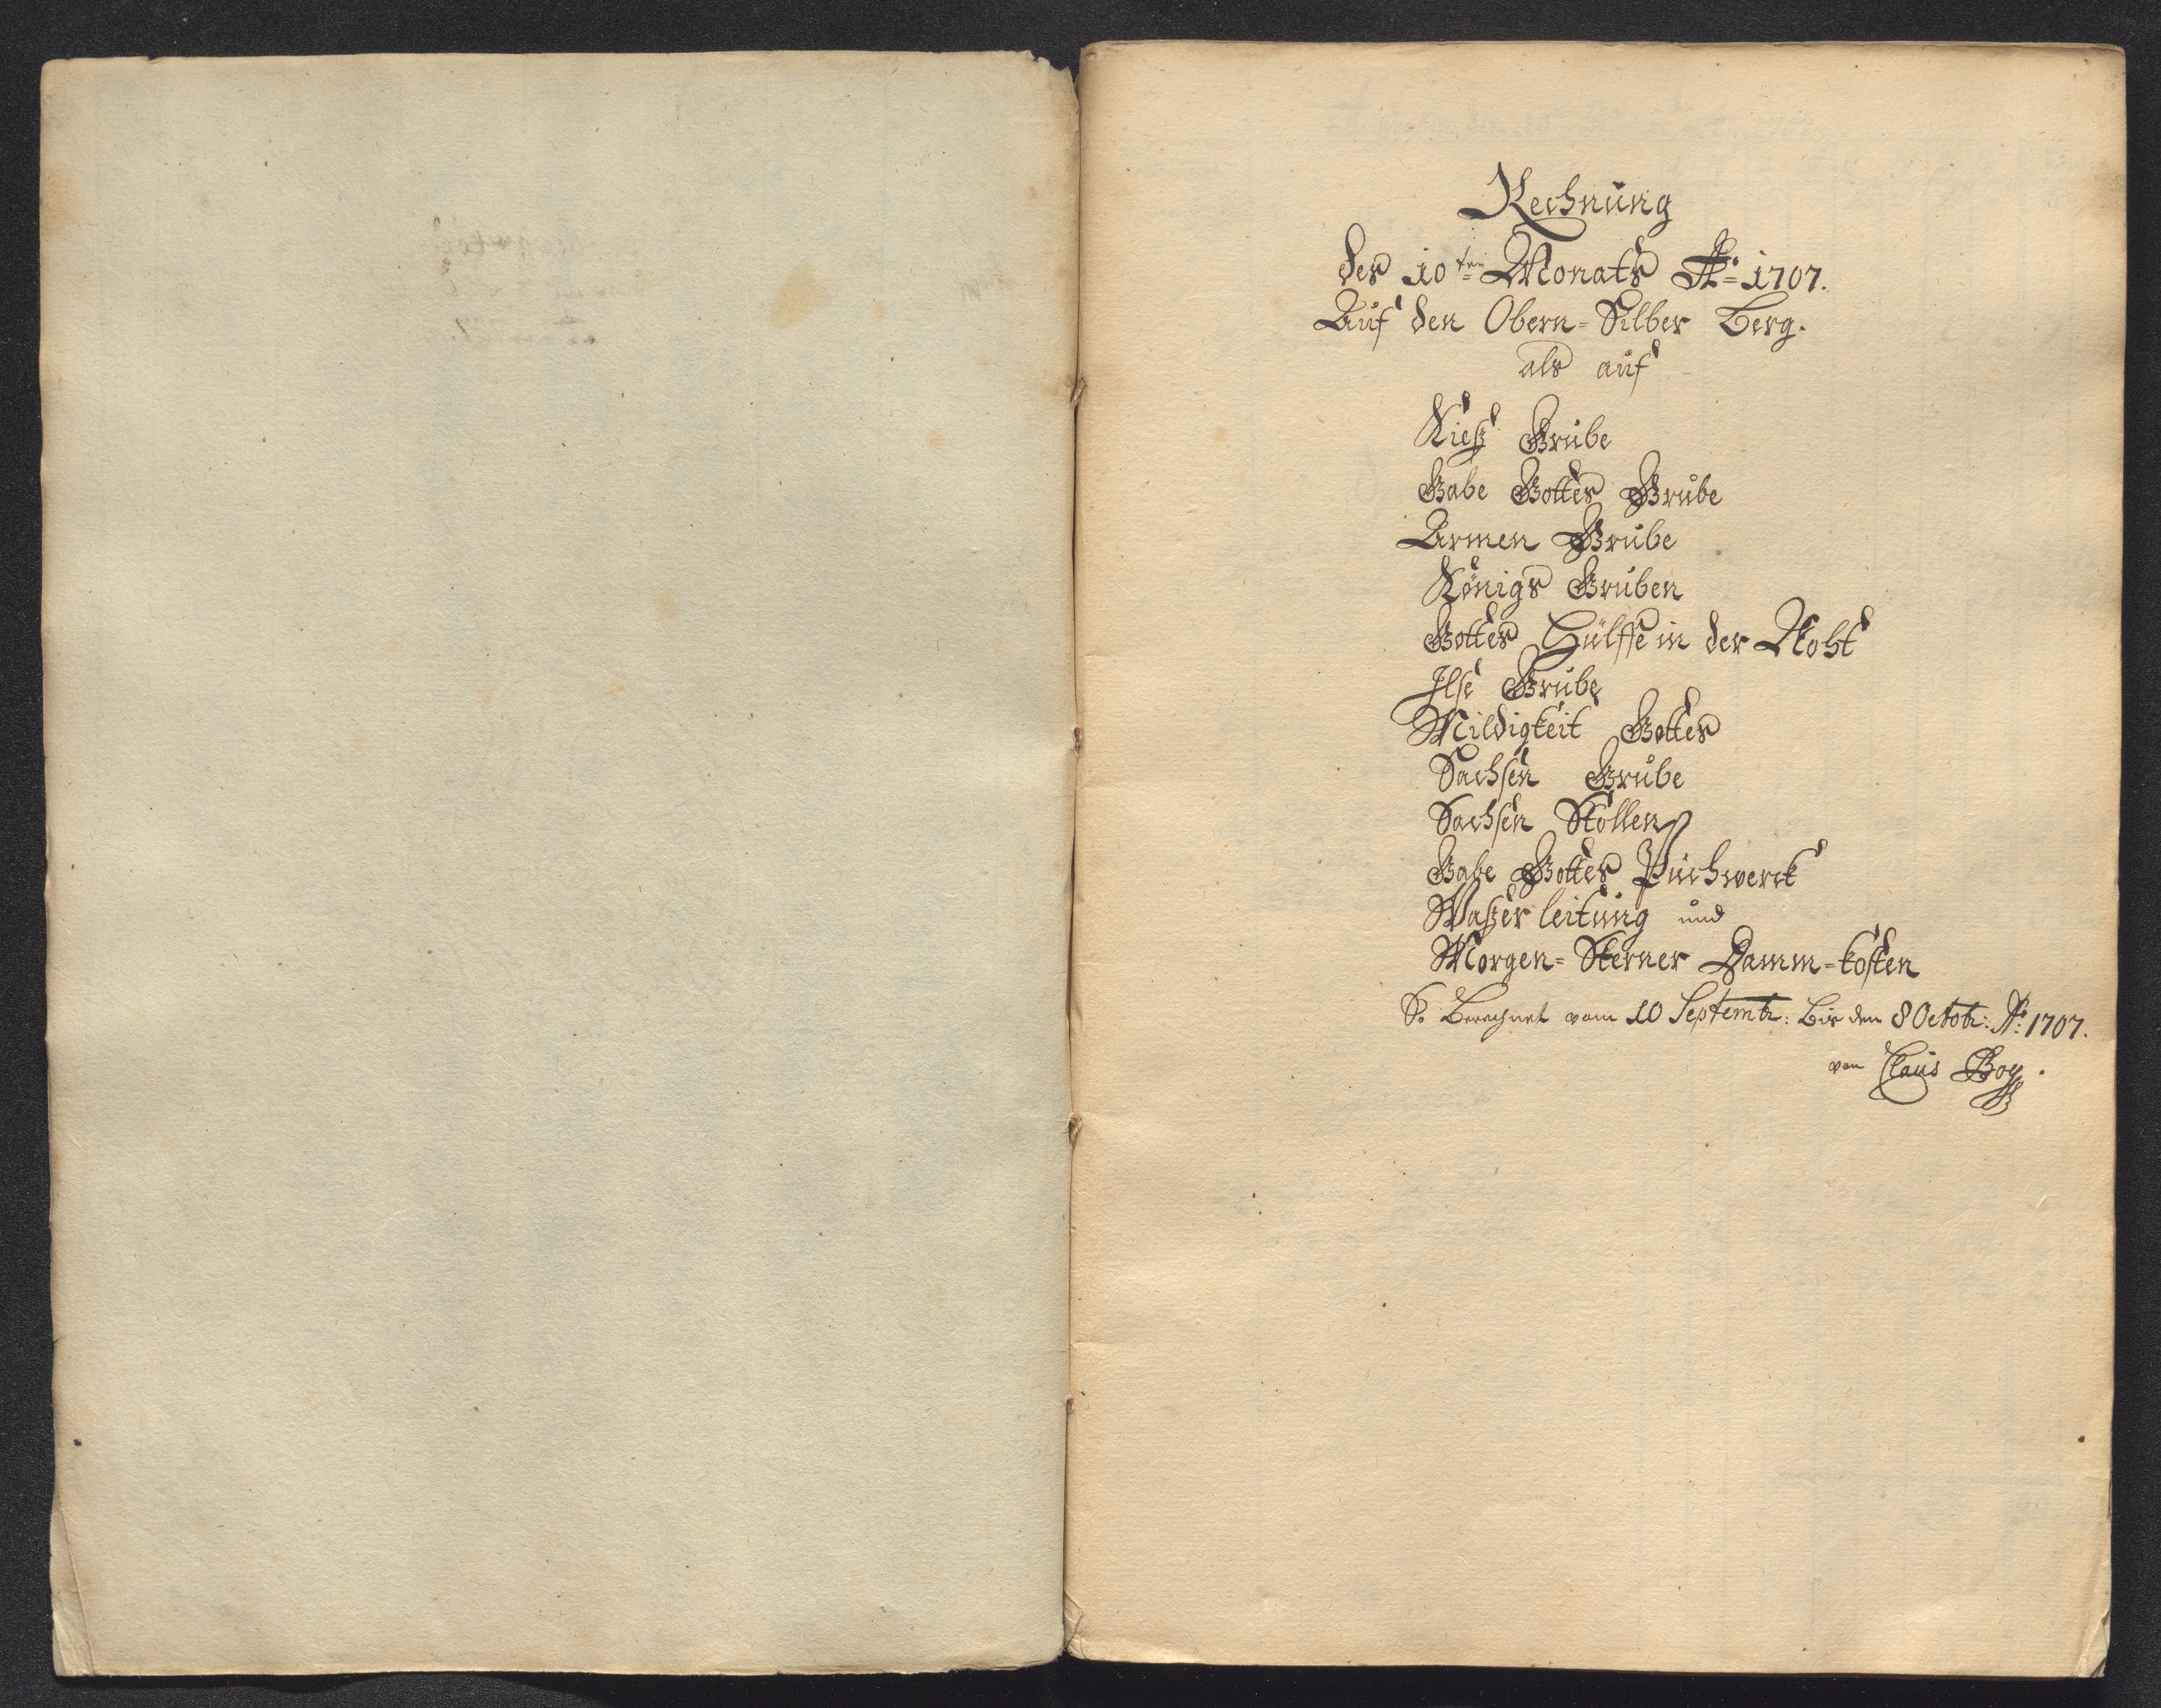 Rechnung
des 10ten Monats Ao 1707.
Auf den Obern=Silber Berg.
als auf
Kieß Grube
Gabe Gottes Grube
Armen Grube
Königs Gruben
Gottes Hülffe in der Noht
Ilse Grube
Mildigkeit Gottes
Sachsen Grube
Sachsen Stollen
Gabe Gottes Puchwerck
Waßer leitung und
Morgen=Sterner Damm=kosten
So Berechnet vom 10 Septembr: Bis den 8 Octobr: Ao: 1707.
von Claus Boy.